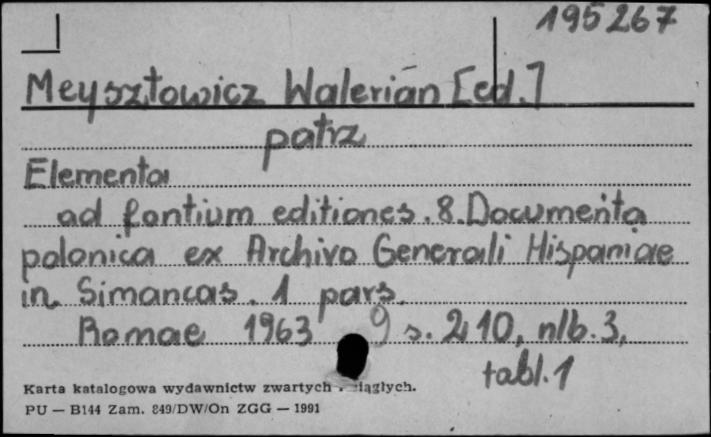 195267
Meysztowicz Walerian [ed.]
patrz
Elementa
ad fontium editiones. 8. Documenta
polonica ex Archivo Generali Hispaniae
in Simancas. 1 pars.
Romae 1963 s. 210, nlb. 3,
tabl. 1
Karta katalogowa wydawnictw zwartych ciągłych.
PU — B144 Zam. 849/DW/On ZGG — 1991